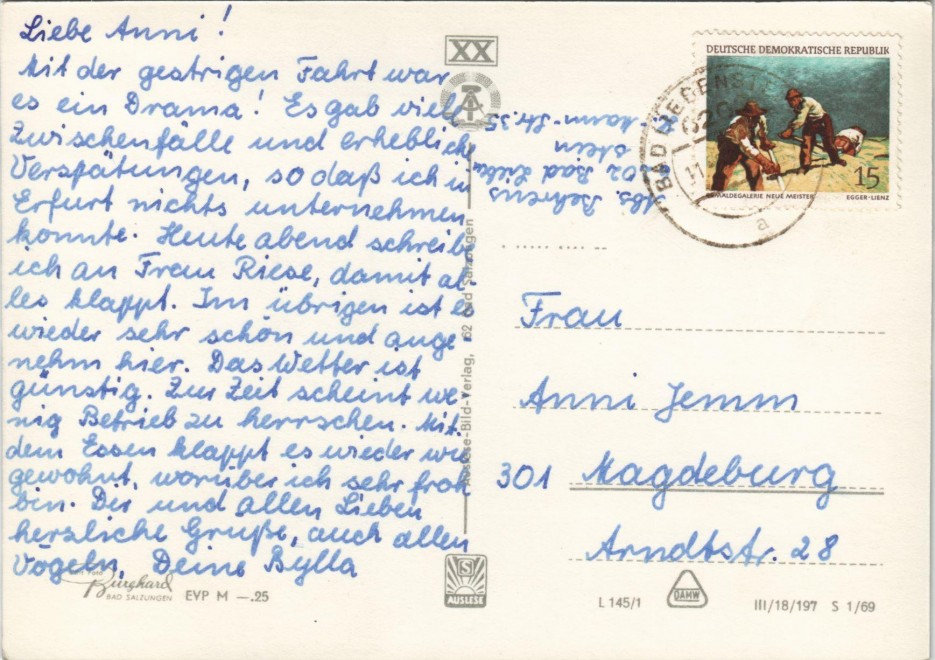 Liebe Anni!
Mit der gestrigen Fahrt war
es ein Drama! Es gab viele
Zwischenfälle und erhebliche
Verspätungen, so daß ich in
Erfurt nichts unternehmen
konnte. Heute abend schreibe
ich an Frau Riese, damit al-
les klappt. Im übrigen ist es
wieder sehr schön und ange-
nehm hier. Das Wetter ist
günstig. Zur Zeit scheint we-
nig Betrieb zu herrschen. Mit
dem Essen klappt es wieder wie
gewohnt, worüber ich sehr froh
bin. Dir und allen Lieben
herzliche Grüße, auch allen
Vögeln, Deine Bylla
Foto
Burghard
BAD SALZUNGEN
EVP M —.25
XX
Auslese-Bild-Verlag, 62 Bad Salzungen
S
AUSLESE
Abs. Behrens
Bad Lieben
stein
-Str. 35
DEUTSCHE DEMOKRATISCHE REPUBLIK
15
GEMÄLDEGALERIE NEUE MEISTER EGGER-LIENZ
BAD LIEBENSTEIN
a
Frau
Anni Jemm
301 Magdeburg
Arndtstr. 28
L 145/1
DAMW
III/18/197 S 1/69